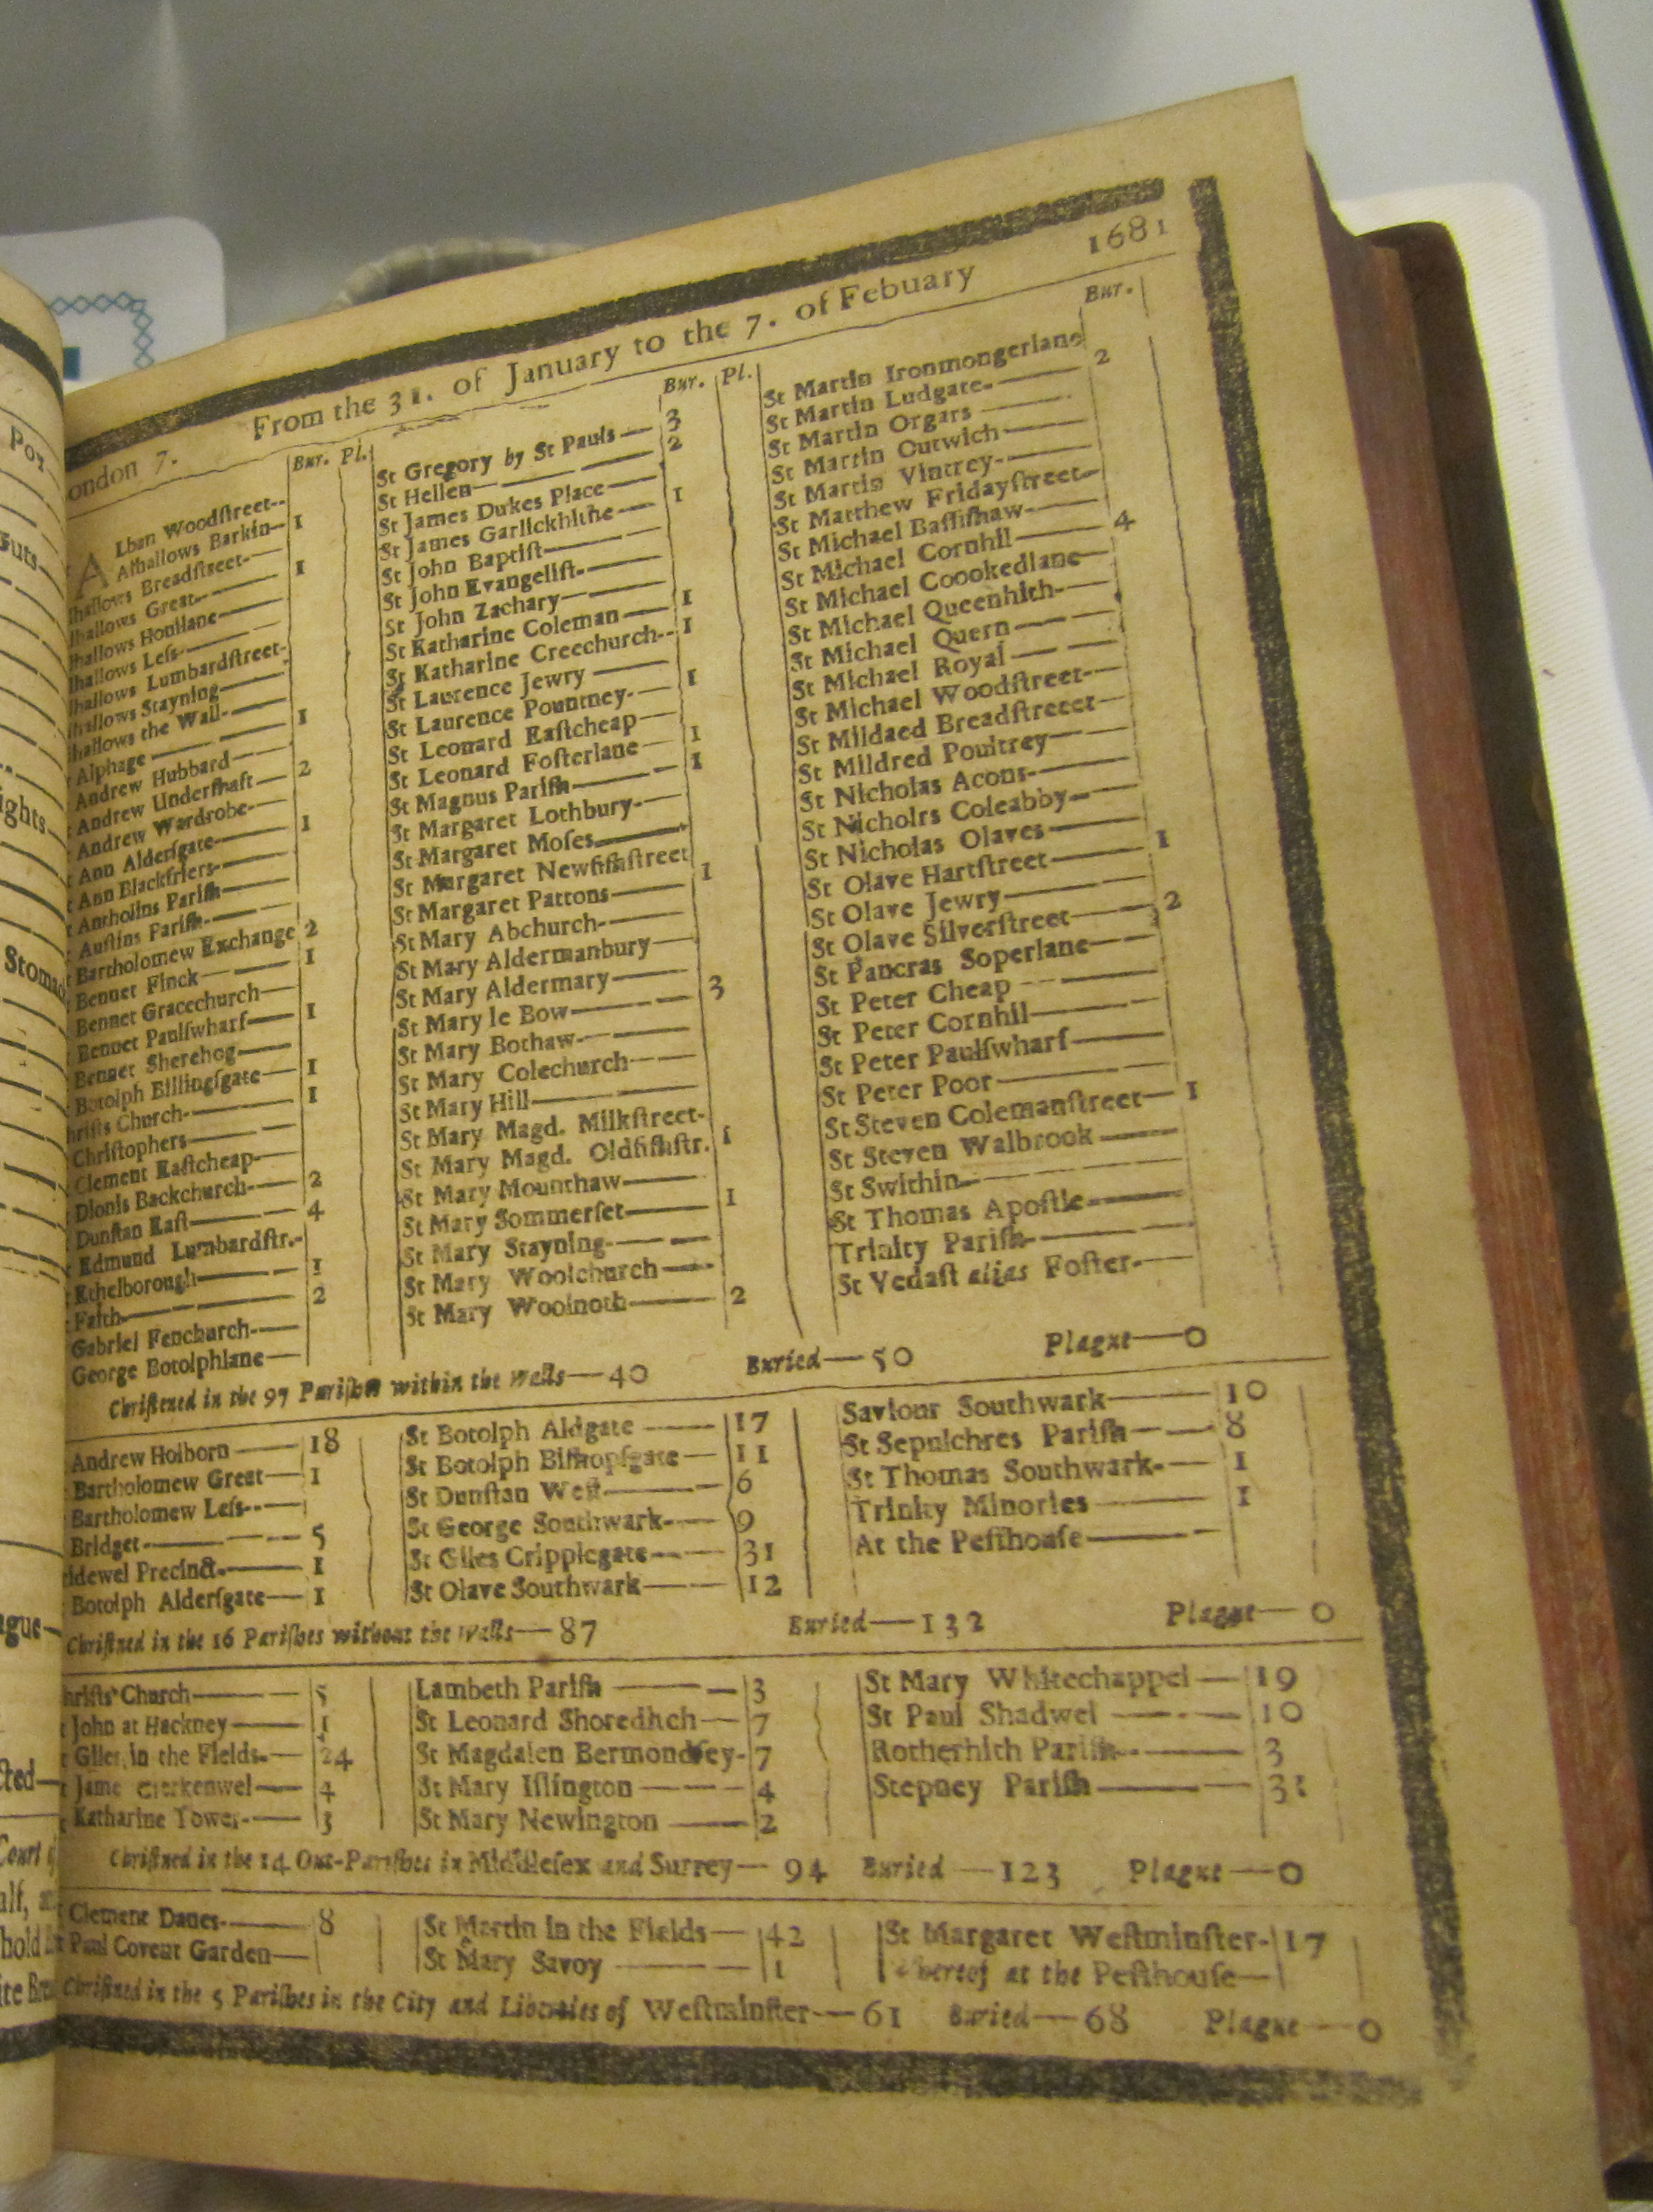 Pox
Guts
ights
Stomac
ague
cted
Court of
alf,
hold
ondon 7. From the 31. of January to the 7. of Febuary 1681
Bur. Pl.
A Lban Woodſtreet
Alhallows Barkin 1
lhallows Breadſtreet
lhallows Great 1
lhallows Honilane
lhallows Leſs
lhallows Lumbardſtreet
lhallows Stayning
lhallows the Wall
Alphage 1
Andrew Hubbard
Andrew Underſhaft 2
Andrew Wardrobe
Ann Alderſgate 1
Ann Blackfriers
Antholins Pariſh
Auſtins Pariſh
Bartholomew Exchange 2
Bennet Finck 1
Bennet Gracechurch
Bennet Paulſwharf 1
Bennet Sherehog
Botolph Billingſgate 1
hriſts Church 1
Chriſtophers
Clement Eaſtcheap
Dionis Backchurch 2
Dunſtan Eaſt 4
Edmund Lumbardſtr.
Ethelborough 1
Faith 2
Gabriel Fenchurch
George Botolphlane
Bur. Pl.
St Gregory by St Pauls 3
St Hellen 2
St James Dukes Place
St James Garlickhithe 1
St John Baptiſt
St John Evangeliſt
St John Zachary
St Katharine Coleman 1
St Katharine Creechurch 1
St Laurence Jewry
St Laurence Pountney 1
St Leonard Eaſtcheap
St Leonard Foſterlane 1
St Magnus Pariſh 1
St Margaret Lothbury
St Margaret Moſes
St Margaret Newfiſhſtreet
St Margaret Pattons 1
St Mary Abchurch
St Mary Aldermanbury
St Mary Aldermary
St Mary le Bow 3
St Mary Bothaw
St Mary Colechurch
St Mary Hill
St Mary Magd. Milkſtreet
St Mary Magd. Oldfiſhſtr. 1
St Mary Mounthaw
St Mary Sommerſet 1
St Mary Stayning
St Mary Woolchurch
St Mary Woolnoth 2
Bur.
St Martin Ironmongerlane
St Martin Ludgate 2
St Martin Orgars
St Martin Outwich
St Martin Vintrey
St Matthew Fridayſtreet
St Michael Baſſiſhaw
St Michael Cornhil 4
St Michael Coookedlane
St Michael Queenhith
St Michael Quern
St Michael Royal
St Michael Woodſtreet
St Mildaed Breadſtreeet
St Mildred Poultrey
St Nicholas Acons
St Nicholrs Coleabby
St Nicholas Olaves
St Olave Hartſtreet 1
St Olave Jewry
St Olave Silverſtreet 2
St Pancras Soperlane
St Peter Cheap
St Peter Cornhil
St Peter Paulſwharf
St Peter Poor
St Steven Colemanſtreet 1
St Steven Walbrook
St Swithin
St Thomas Apoſtle
Trinity Pariſh
St Vedaſt alias Foſter
Chriſtned in the 97 Pariſhes within the Walls—40 Buried—50 Plague—0
Andrew Holborn 18
Bartholomew Great 1
Bartholomew Leſs
Bridget 5
idewel Precinct 1
Botolph Alderſgate 1
St Botolph Aldgate 17
St Botolph Biſhopſgate 11
St Dunſtan Weſt 6
St George Southwark 9
St Giles Cripplegate 31
St Olave Southwark 12
Saviour Southwark 10
St Sepulchres Pariſh 8
St Thomas Southwark 1
Trinity Minories 1
At the Peſthouſe
Chriſtned in the 16 Pariſhes without the Walls—87 Buried—132 Plague—0
hriſts Church 5
John at Hackney 1
Giles in the Fields 24
Jame Clerkenwel 4
Katharine Tower 3
Lambeth Pariſh 3
St Leonard Shoreditch 7
St Magdalen Bermondſey 7
St Mary Iſlington 4
St Mary Newington 2
St Mary Whitechappel 19
St Paul Shadwel 10
Rotherhith Pariſh 3
Stepney Pariſh 31
Chriſtned in the 14 Out-Pariſhes in Middleſex and Surrey—94 Buried—123 Plague—0
Clement Danes 8
Paul Covent Garden
St Martin in the Fields 42
St Mary Savoy 1
St Margaret Weſtminſter 17
whereof at the Peſthouſe
Chriſtned in the 5 Pariſhes in the City and Liberties of Weſtminſter—61 Buried—68 Plague—0